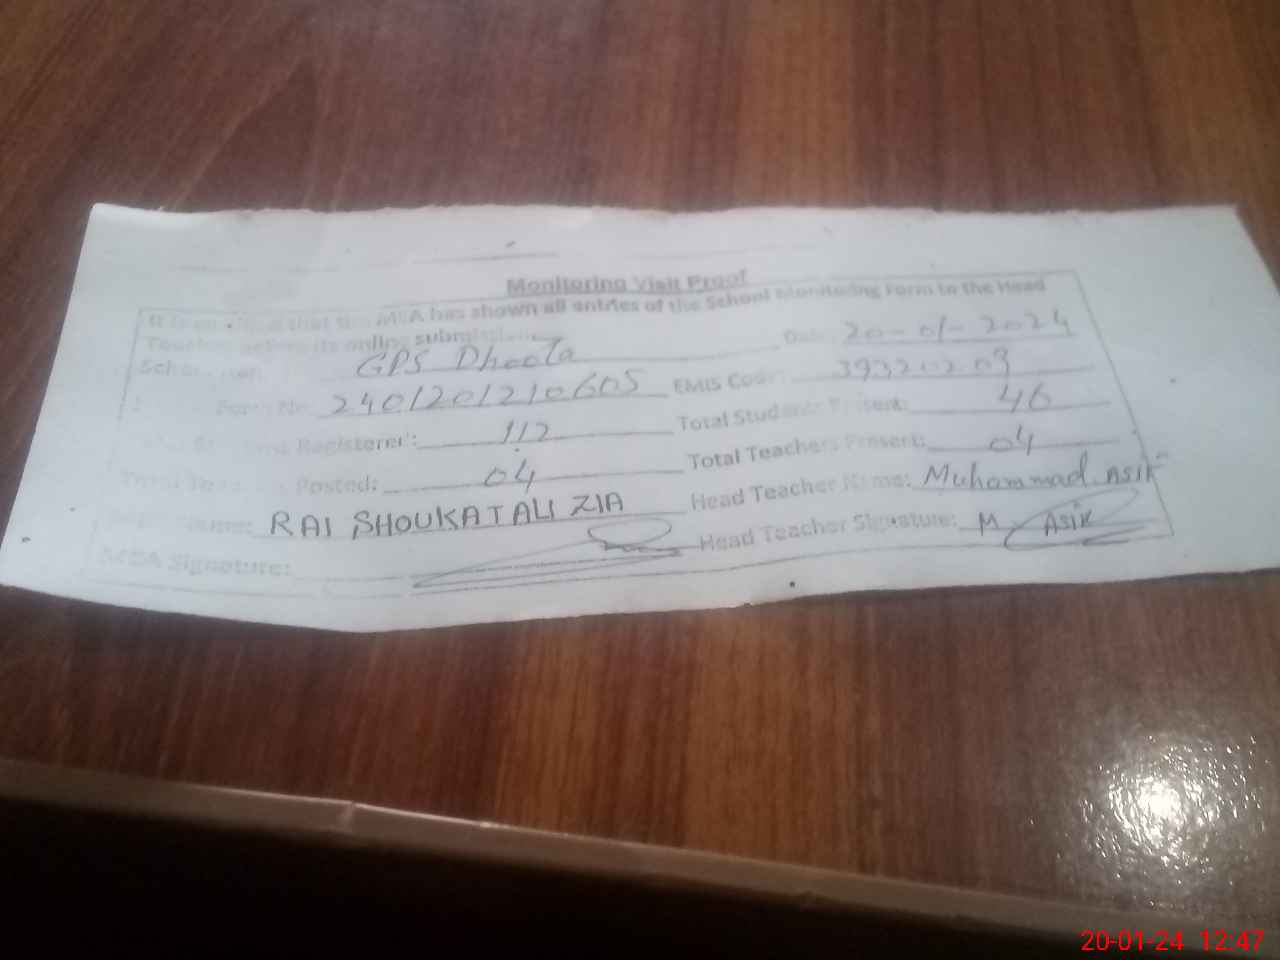 Monitoring Visit Proof
that the MEA has shown all entries of the School Monitoring Form to the Head
its online submission. Date: 20-01-2024
GPS Dhoota
Form No. 240120121060S EMIS Code: 39320203
Registered: 112 Total Students Present: 46
Posted: 04 Total Teachers Present: 04
Name: RAI SHOUKAT ALI ZIA Head Teacher Name: Muhammad Asif
MEA Signature: Head Teacher Signature: M Asif
20-01-24 12:47